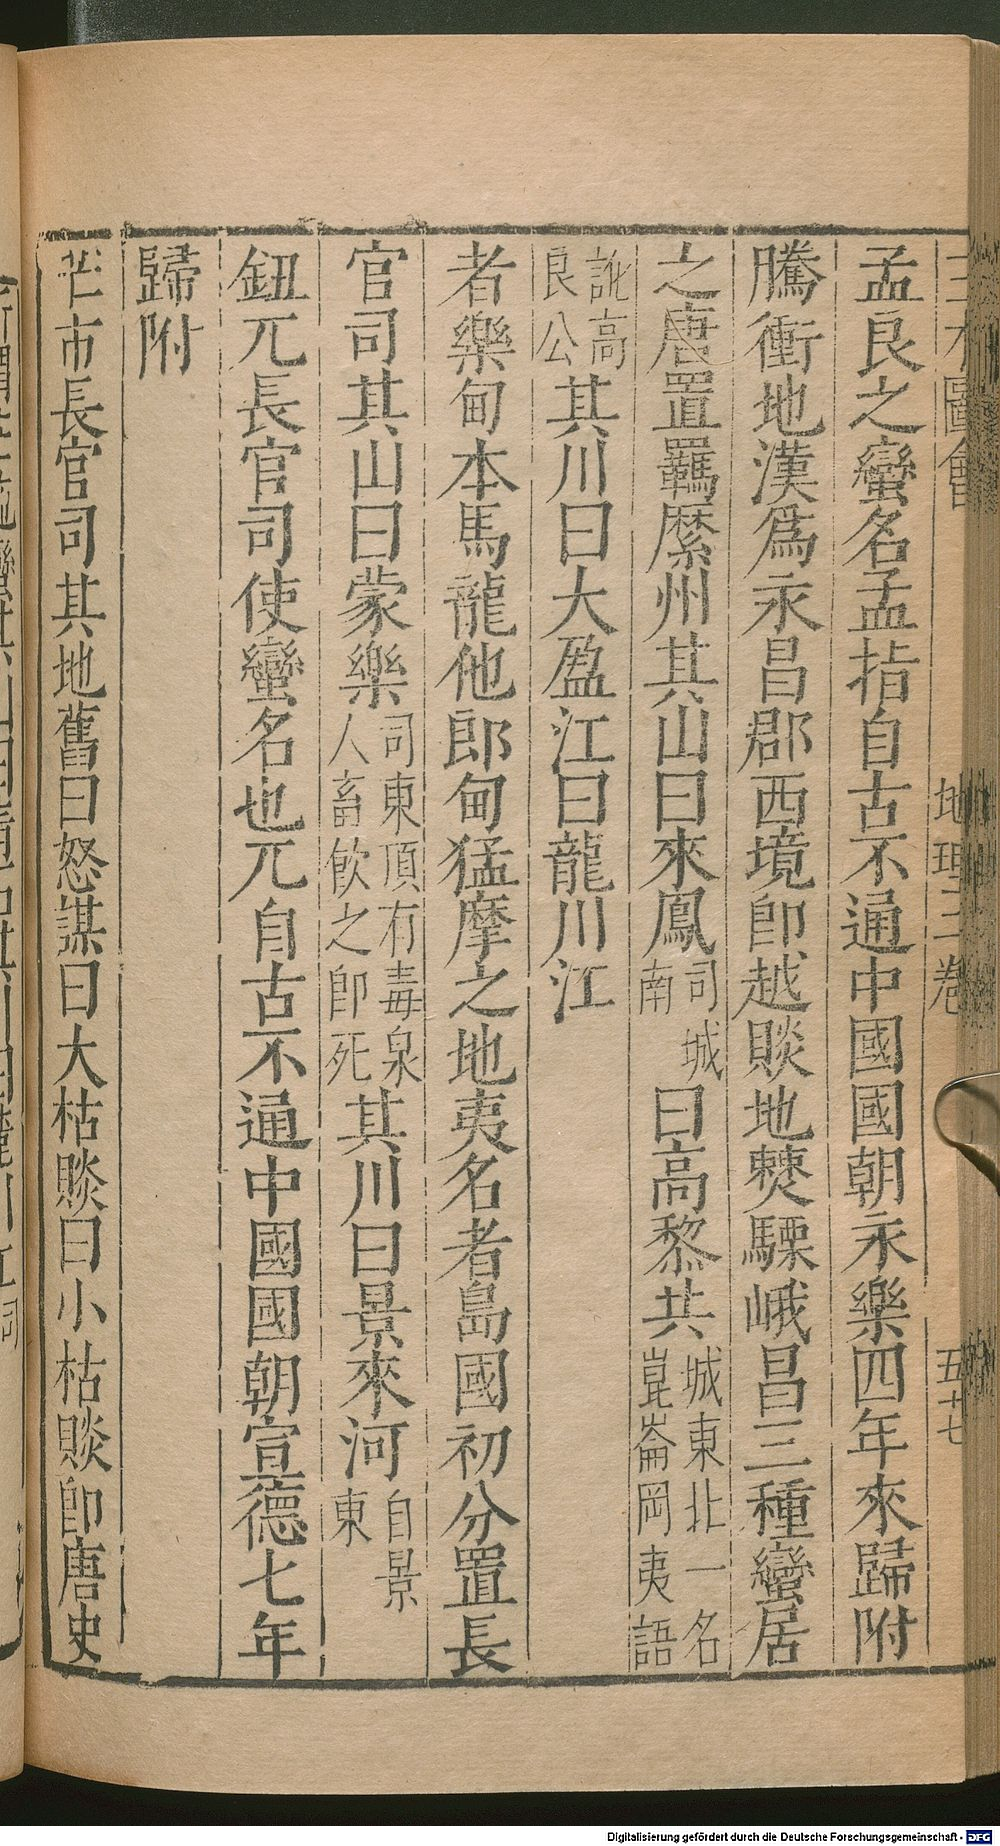 三才圖會 地理三卷 五十七
孟良之蠻名孟指自古不通中國國朝永樂四年來歸附
騰衝地漢爲永昌郡西境卽越賧地僰驃峨昌三種蠻居
之唐置羈縻州其山曰來鳳司城南曰高黎共城東北一名崑崙岡夷語
訛高良公其川曰大盈江曰龍川江
者樂甸本馬龍他郎甸猛摩之地夷名者島國初分置長
官司其山曰蒙樂司東頂有毒泉人畜飮之卽死其川曰景來河自景東
鈕兀長官司使蠻名也兀自古不通中國國朝宣德七年
歸附
芒市長官司其地舊曰怒謀曰大枯賧曰小枯賧卽唐史
Digitalisierung gefördert durch die Deutsche Forschungsgemeinschaft - DFG